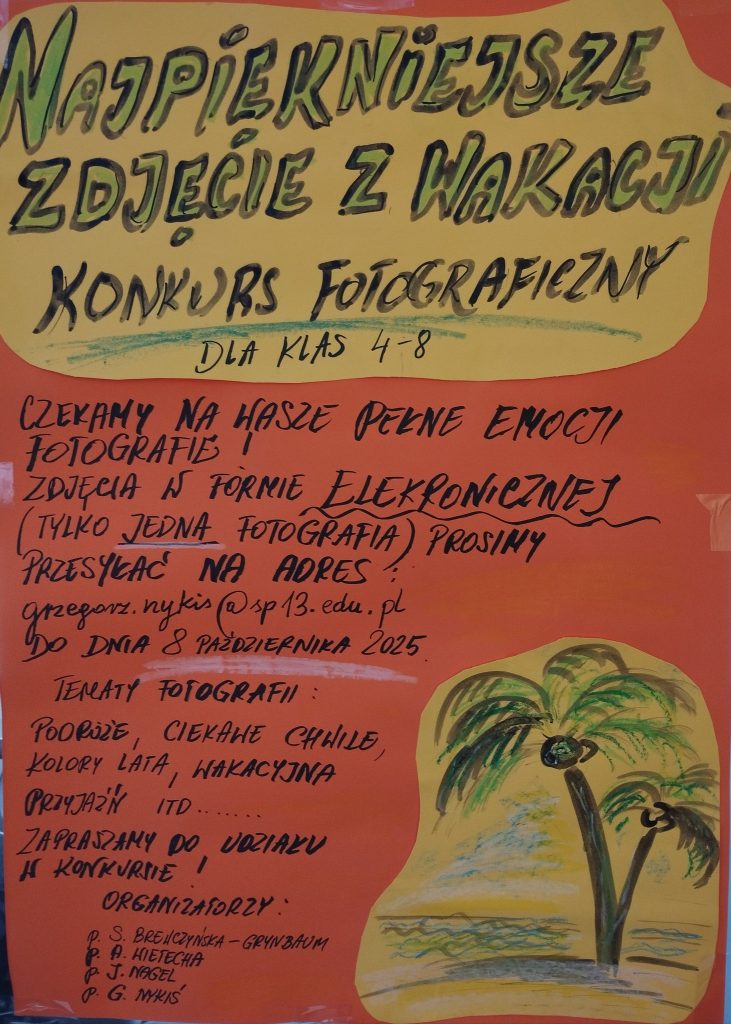 NAJPIĘKNIEJSZE
ZDJĘCIE Z WAKACJI
KONKURS FOTOGRAFICZNY
DLA KLAS 4-8
CZEKAMY NA WASZE PEŁNE EMOCJI
FOTOGRAFIE!
ZDJĘCIA W FORMIE ELEKRONICZNEJ
(TYLKO JEDNA FOTOGRAFIA) PROSIMY
PRZESYŁAĆ NA ADRES:
grzegorz.nykis@sp13.edu.pl
DO DNIA 8 PAŹDZIERNIKA 2025
TEMATY FOTOGRAFII:
PODRÓŻE, CIEKAWE CHWILE,
KOLORY LATA, WAKACYJNA
PRZYJAŹŃ ITD.......
ZAPRASZAMY DO UDZIAŁU
W KONKURSIE!
ORGANIZATORZY:
p. S. BREŃCZYŃSKA-GRYNBAUM
p. A. WIETECHA
p. J. NAGEL
p. G. NYKIŚ